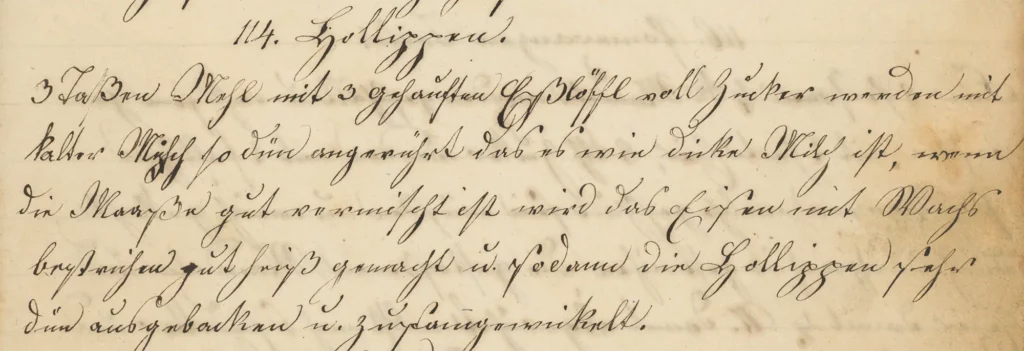 114. Hollippen.
3 Taßen Mehl mit 3 gehauften Eßlöffl voll Zucker werden mit
kalter Milch so dün angerührt das es wie dicke Milch ist, wenn
die Maaße gut vermischt ist wird das Eisen mit Wachs
bestrichen gut heiß gemacht u. sodann die Hollippen sehr
dün ausgebacken u. zusam̅gewickelt.